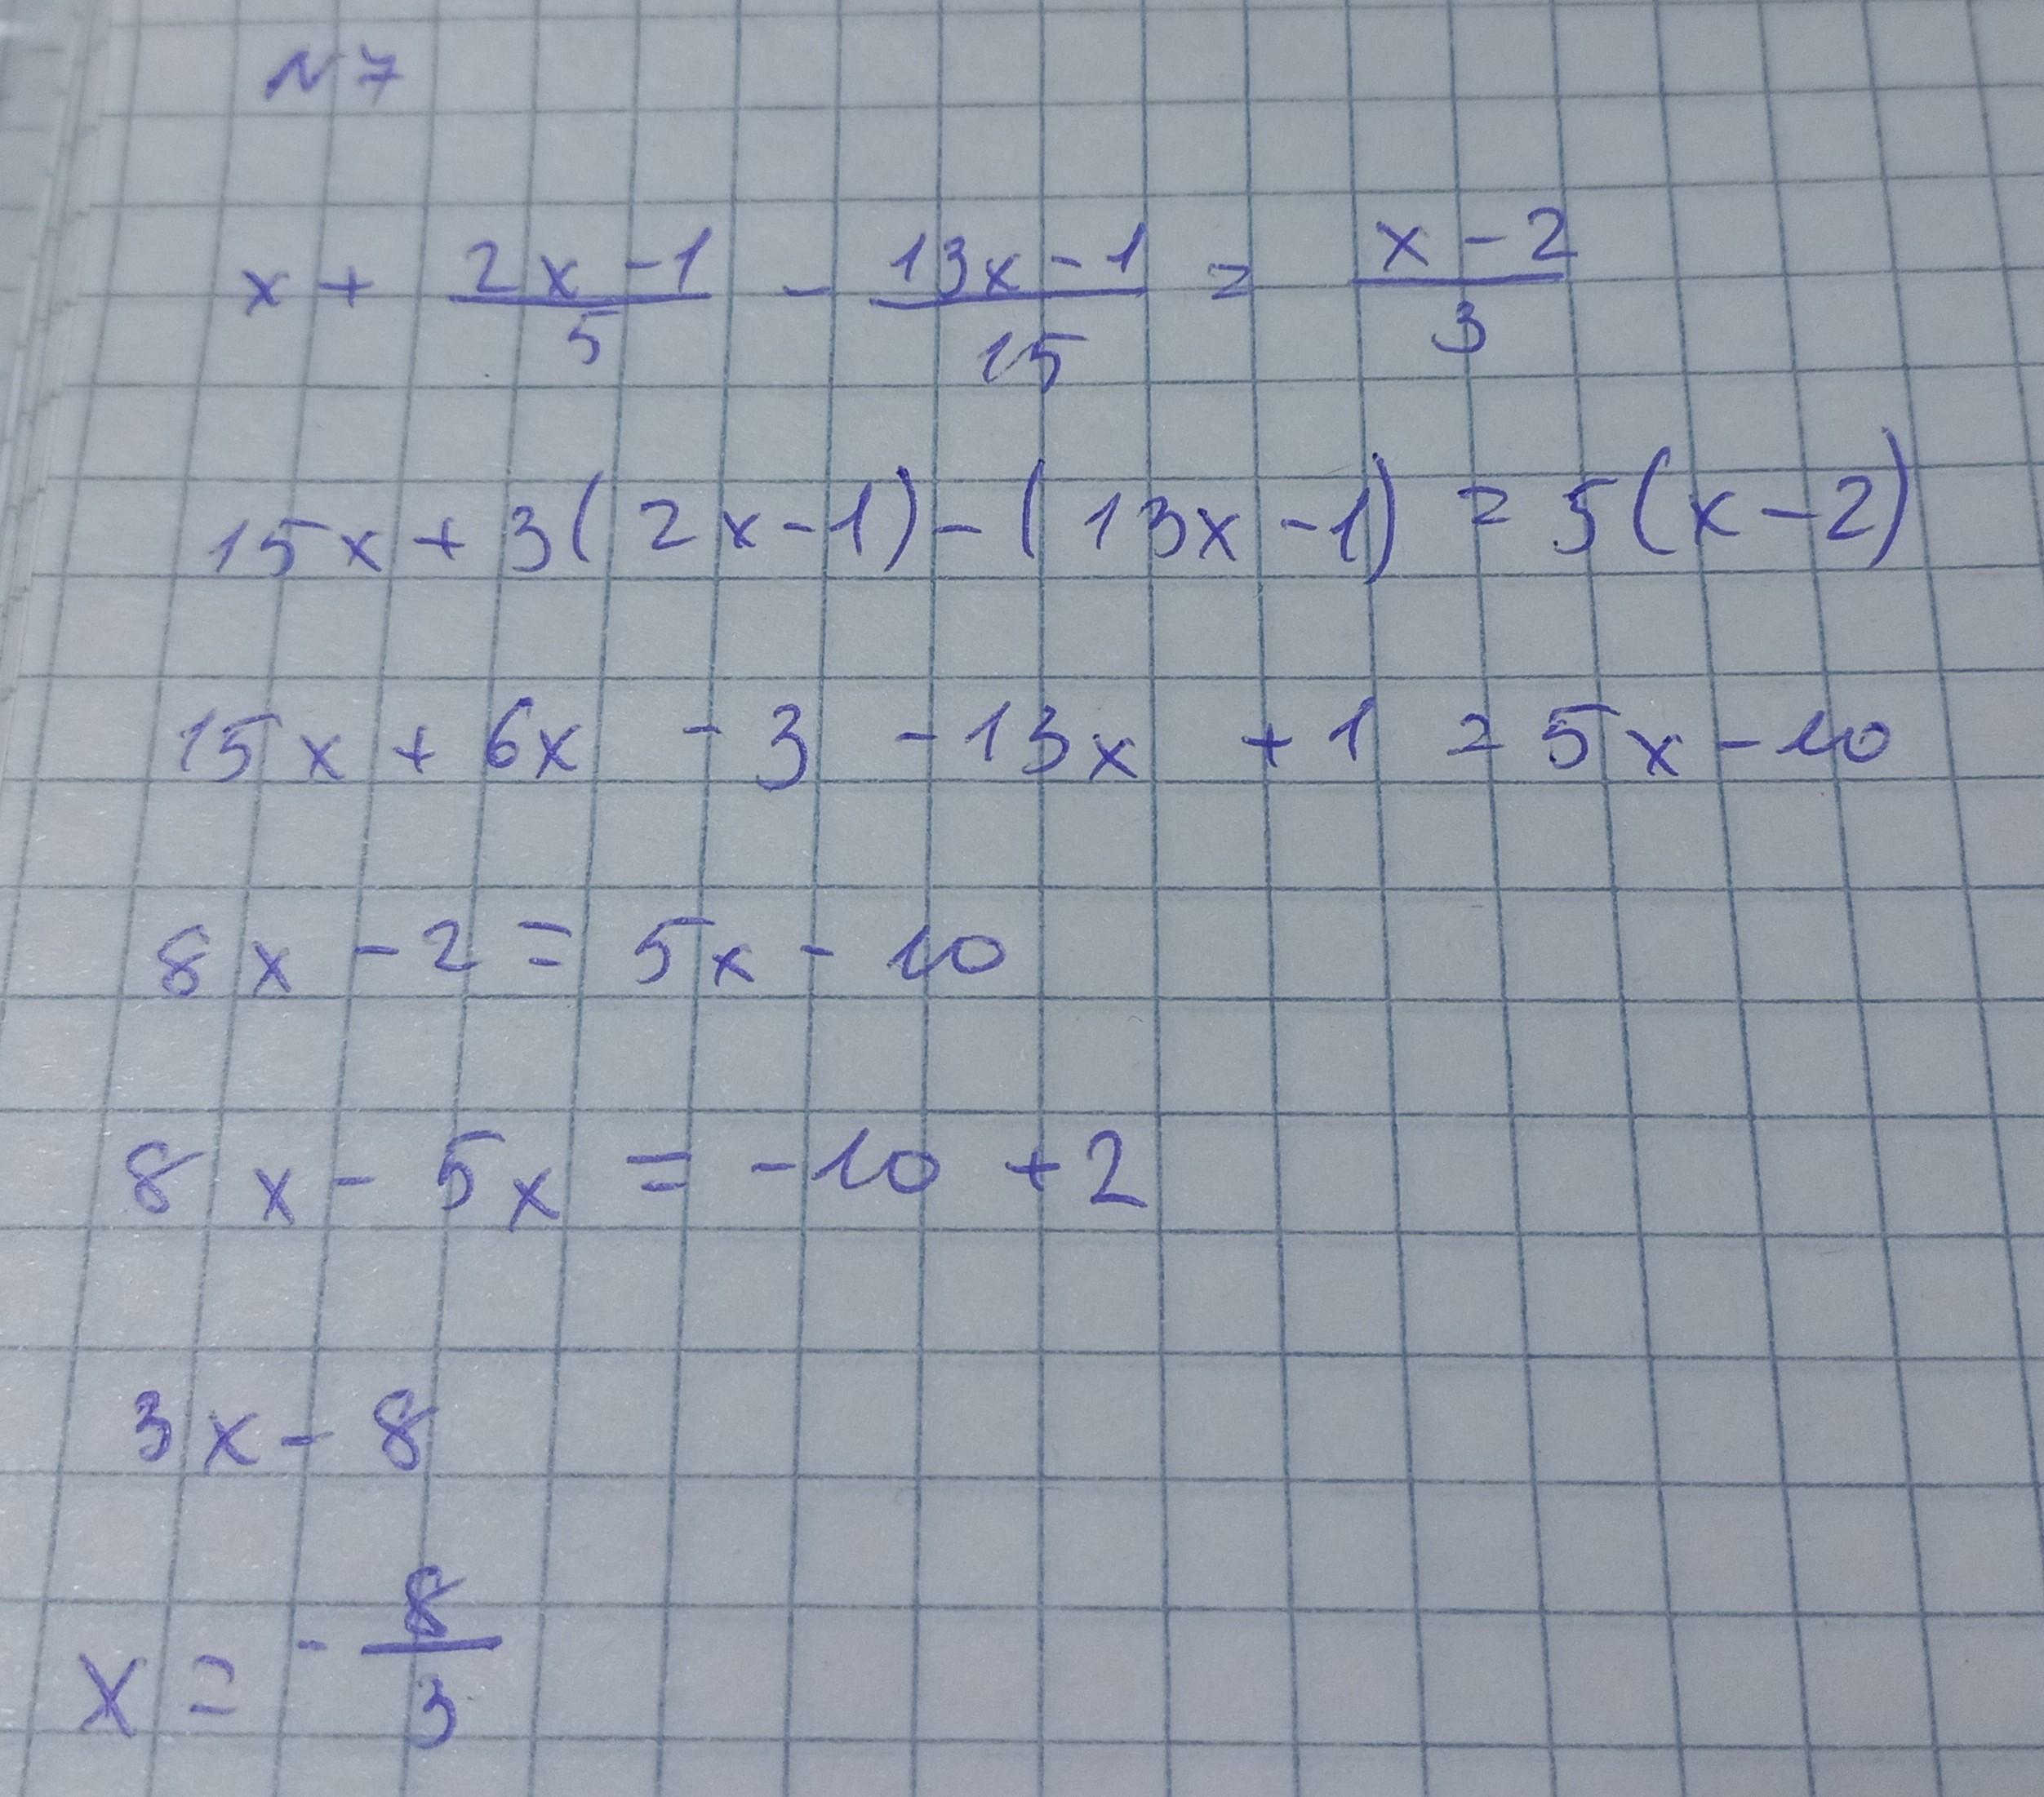 N7
x + (2x-1)/5 - (13x-1)/15 = (x-2)/3
15x + 3(2x-1) - (13x-1) = 5(x-2)
15x + 6x - 3 - 13x + 1 = 5x - 10
8x - 2 = 5x - 10
8x - 5x = -10 + 2
3x - 8
x = - 8/3